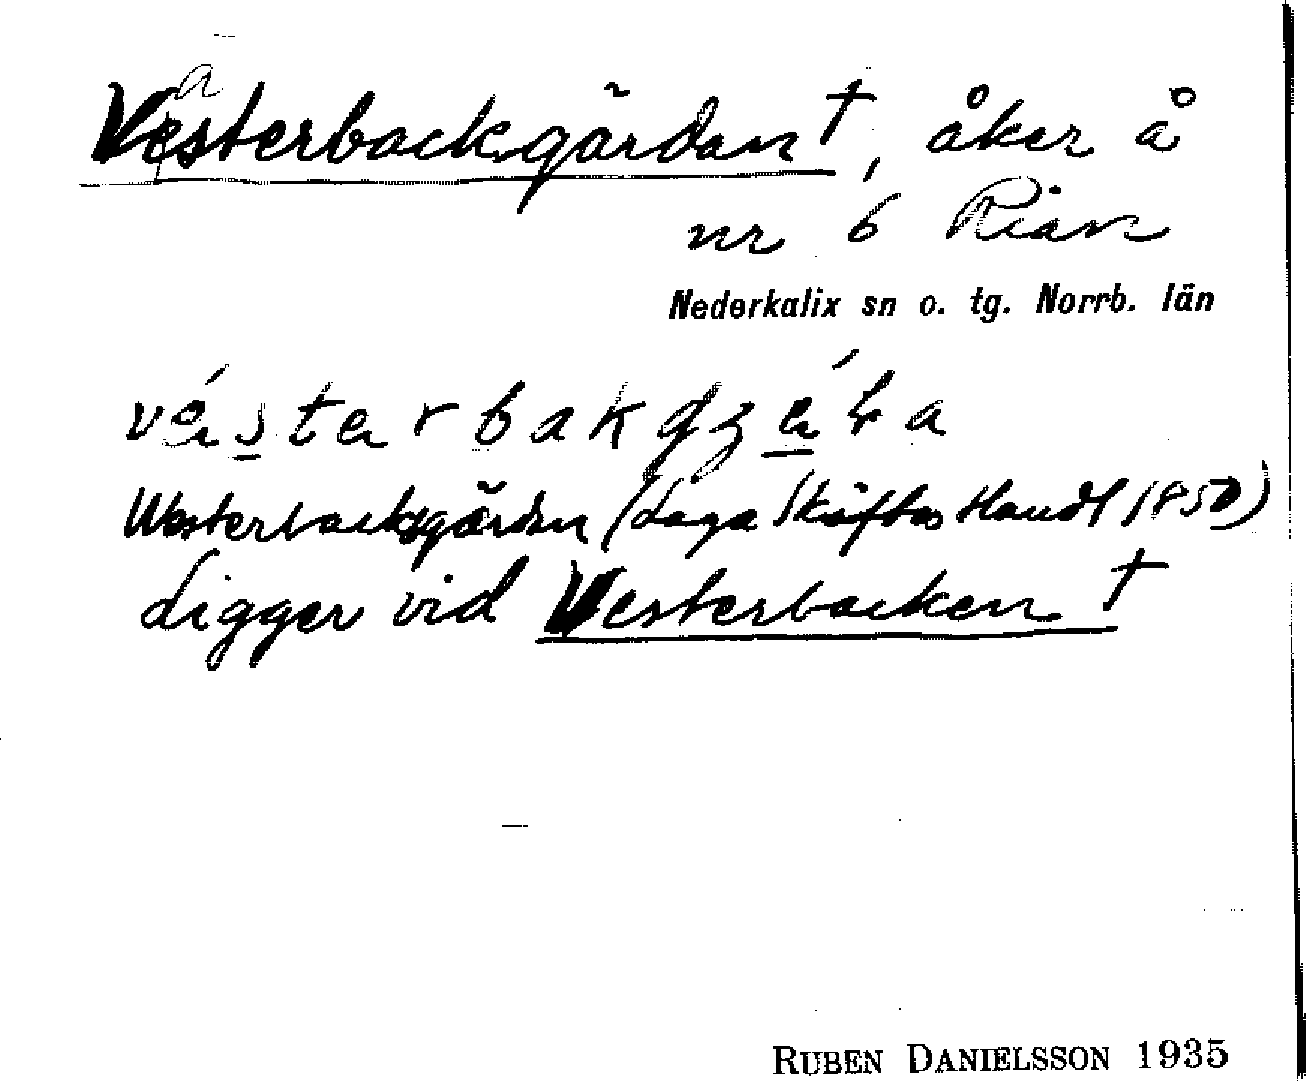 Vesterbackgärdan †, åker å
nr 6 Rian
Nederkalix sn o. tg. Norrb. län
Westerbacksgärdan (Laga Skiftes Handl 1850)
Ligger vid Vesterbacken †
RUBEN DANIELSSON 1935